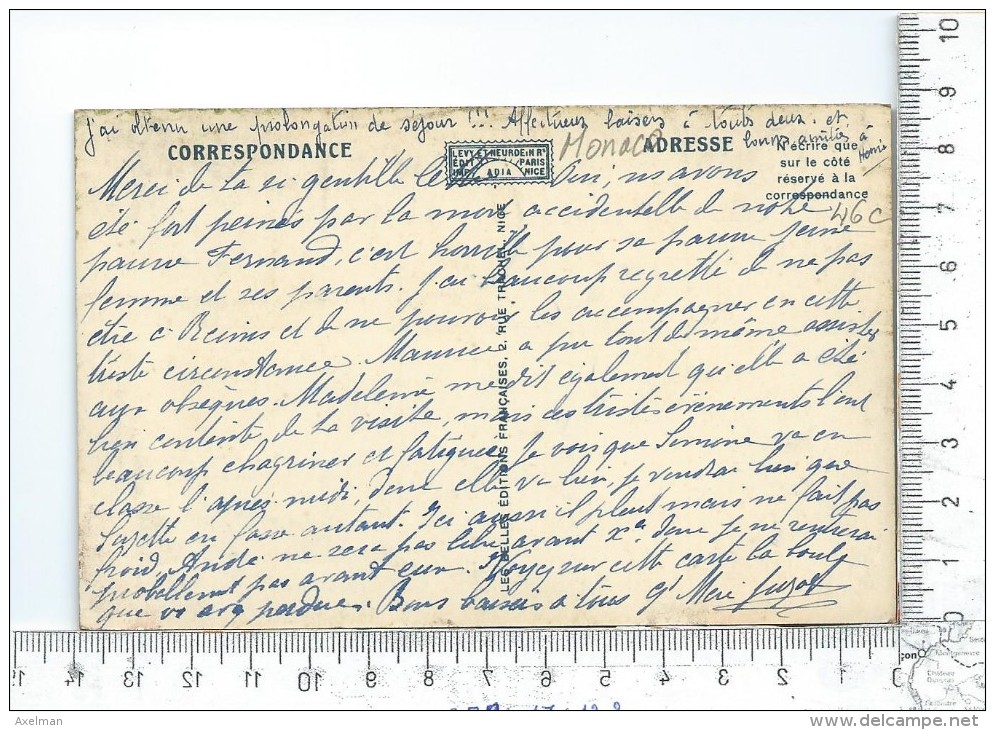 j'ai obtenu une prolongation de séjour !!! Affectueux baisers à toutes deux. et
bonnes amitiés à
Henri
CORRESPONDANCE
LEVY ET NEURDEIN Rs
ÉDIT PARIS
IMP. ADIA NICE
Monaco
ADRESSE
N'écrire que
sur le côté
réservé à la
correspondance
46C
Merci de ta si gentille Oui, ns avons
été fort peinés par la mort accidentelle de notre
pauvre Fernand, c'est horrible pour sa pauvre jeune
femme et ses parents. J'ai beaucoup regretté de ne pas
être à Reims et de ne pouvoir les accompagner en cette
triste circonstance. Maurice a pu tout de même assister
aux obsèques. Madeleine me dit également qu'elle a été
bien contente de ta visite, mais ces tristes évènements l'ont
beaucoup chagriner et fatiguée. Je vois que Simone va en
classe l'après-midi, donc elle va bien, je voudrai bien que
Suzette en fasse autant. Ici aussi il pleut mais ne fait pas
froid, André ne sera pas libre avant donc je ne rentrerai
probablement pas avant eux. Voyez sur cette carte la boule
que vs avez perdue. Bons baisers à tous Gd Mère
LES BELLES ÉDITIONS FRANÇAISES, 2, RUE TRACHEL, NICE
0 1 2 3 4 5 6 7 8 9 10
15 14 13 12 11 10 9 8 7 6 5 4 3 2 1 0
Axelman
www.delcampe.net